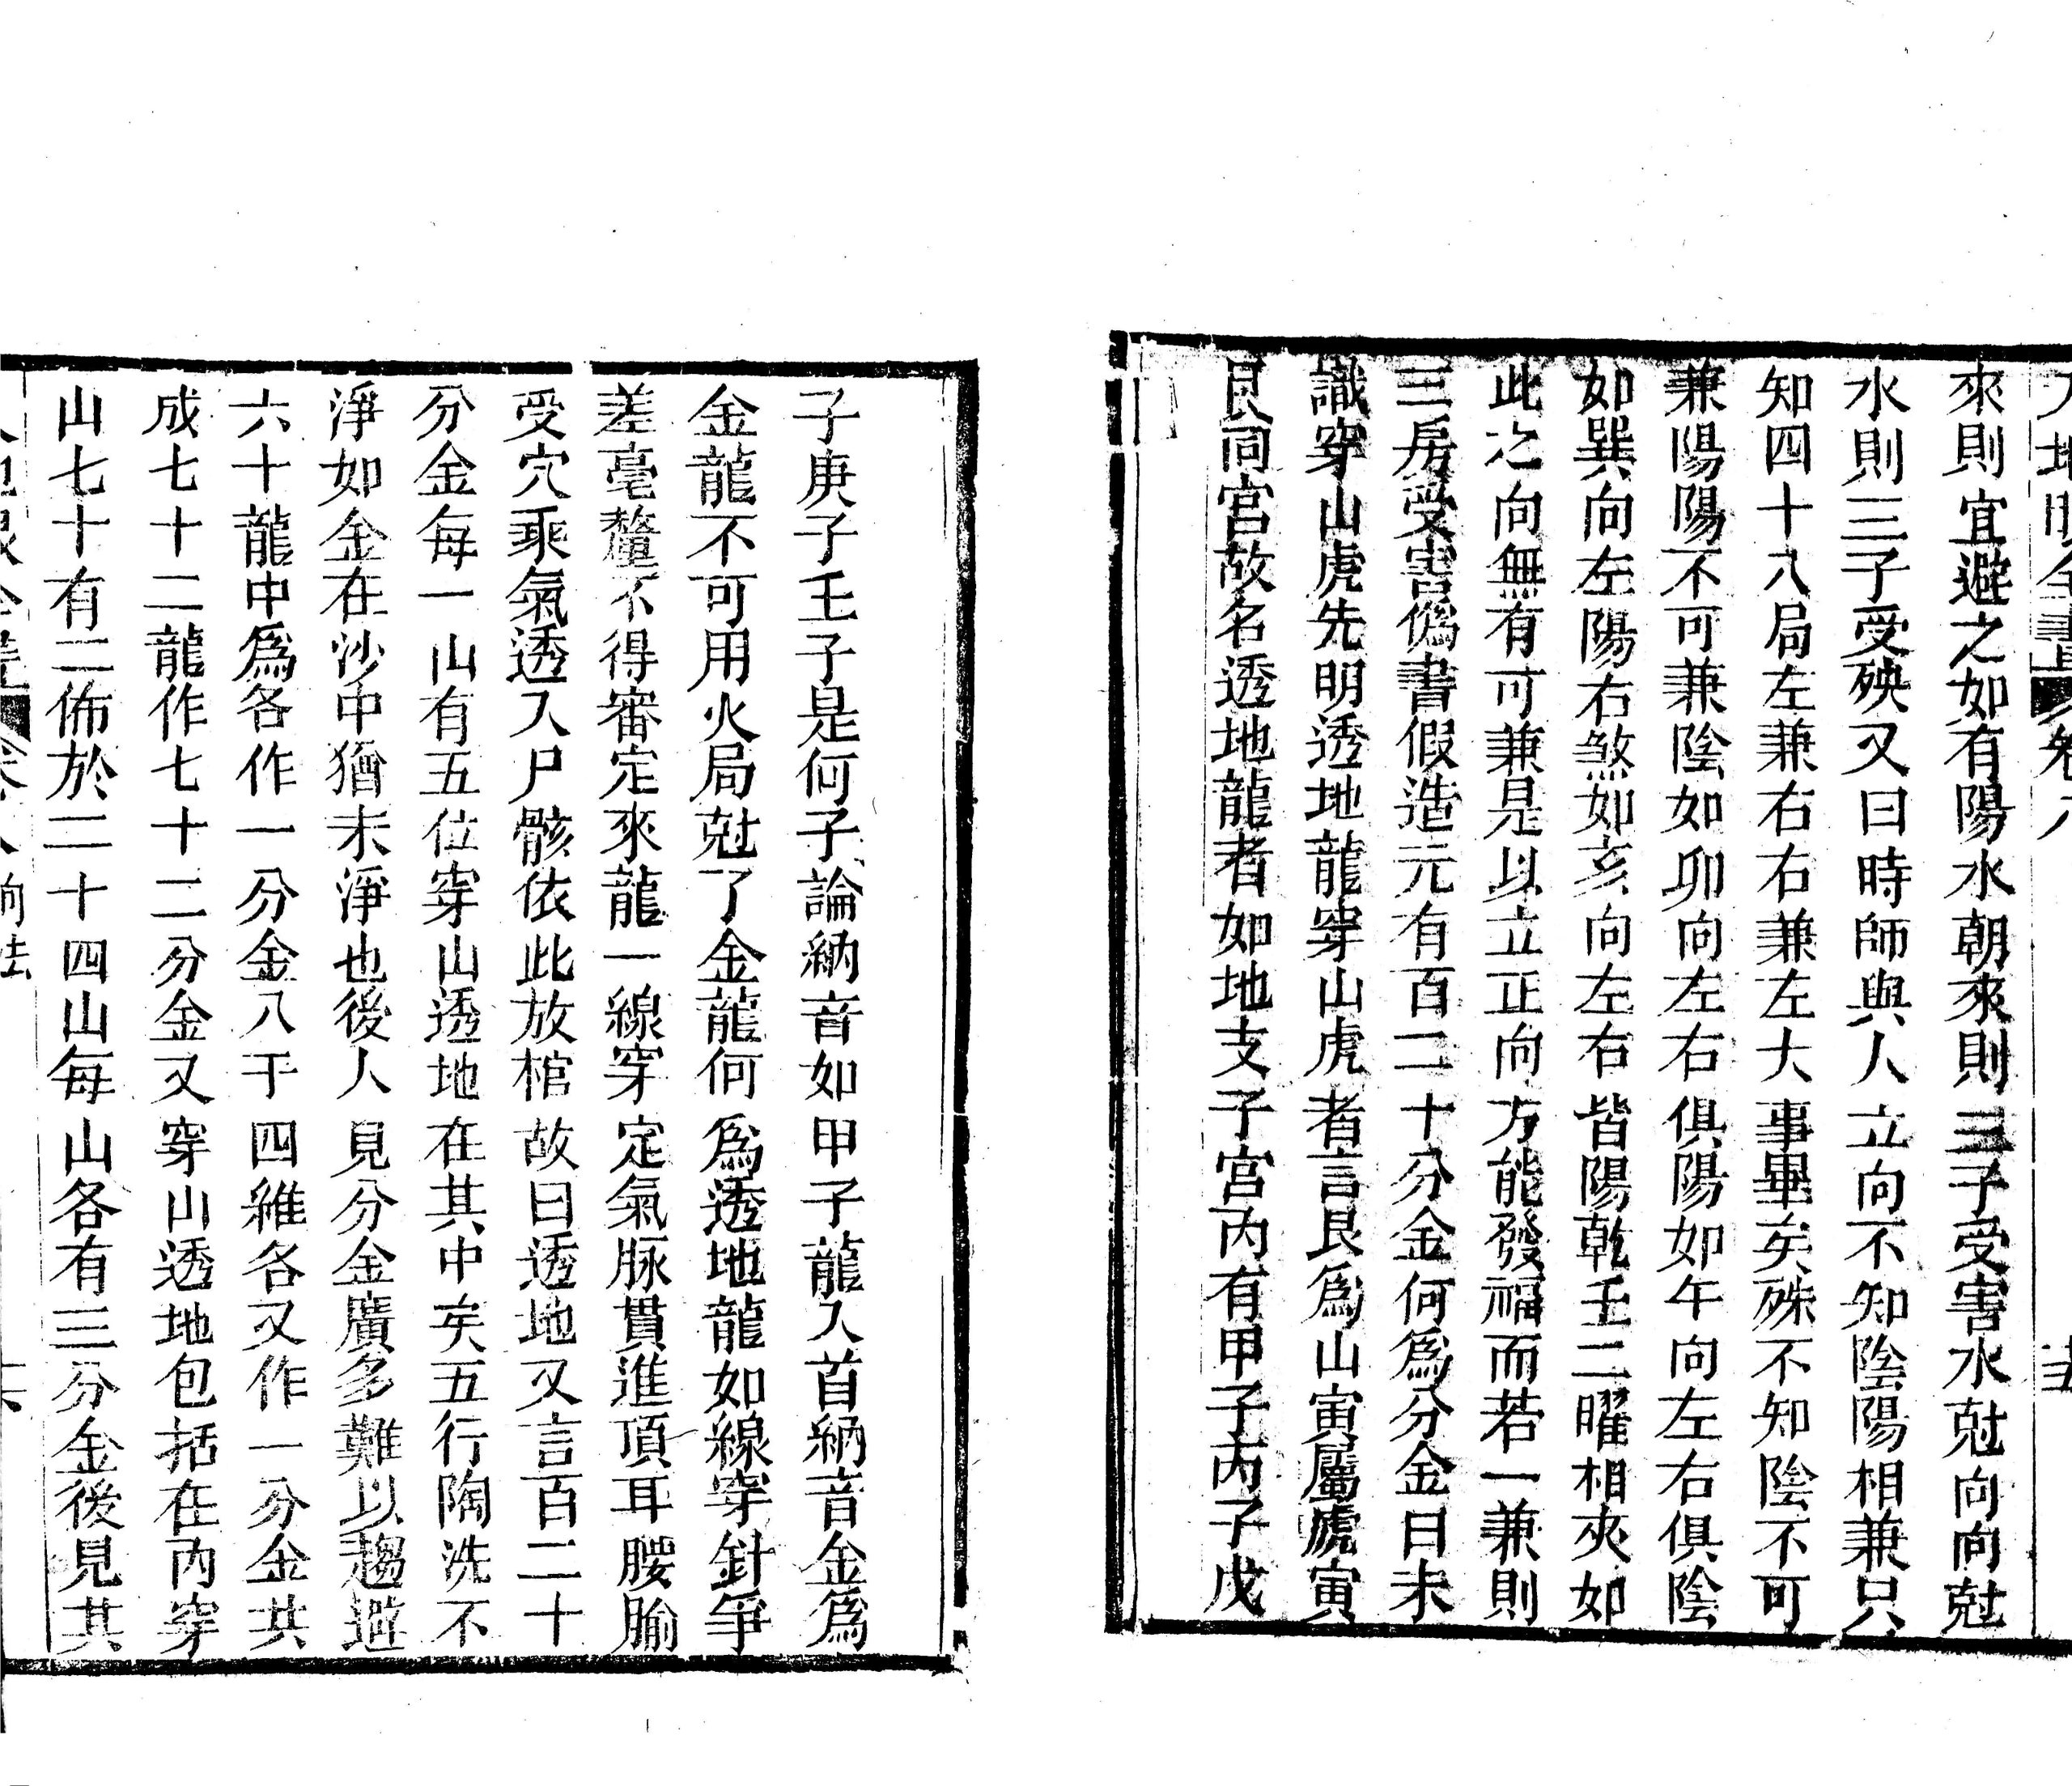 來則宜避之如有陽水朝來則三子受害水尅向向尅
水則三子受殃又曰時師與人立向不知陰陽相兼只
知四十八局左兼右右兼左大事畢矣殊不知陰不可
兼陽陽不可兼陰如卯向左右俱陽如午向左右俱陰
如巽向左陽右煞如亥向左右皆陽乾壬二曜相夾如
此之向無有可兼是以立正向方能發福而若一兼則
三房受害僞書假造元有百二十分金何爲分金曰未
識穿山虎先明透地龍穿山虎者言艮爲山寅屬虎寅
艮同宮故名透地龍者如地支子宮內有甲子丙子戊
子庚子壬子是何子論納音如甲子龍入首納音金爲
金龍不可用火局尅了金龍何爲透地龍如線穿針爭
差毫釐不得審定來龍一線穿定氣脉貫進頂耳腰腧
受穴乘氣透入尸骸依此放棺故曰透地又言百二十
分金每一山有五位穿山透地在其中矣五行陶洗不
淨如金在沙中猶未淨也後人見分金廣多難以趨避
六十龍中爲各作一分金八干四維各又作一分金共
成七十二龍作七十二分金又穿山透地包括在內穿
山七十有二佈於二十四山每山各有三分金後見其